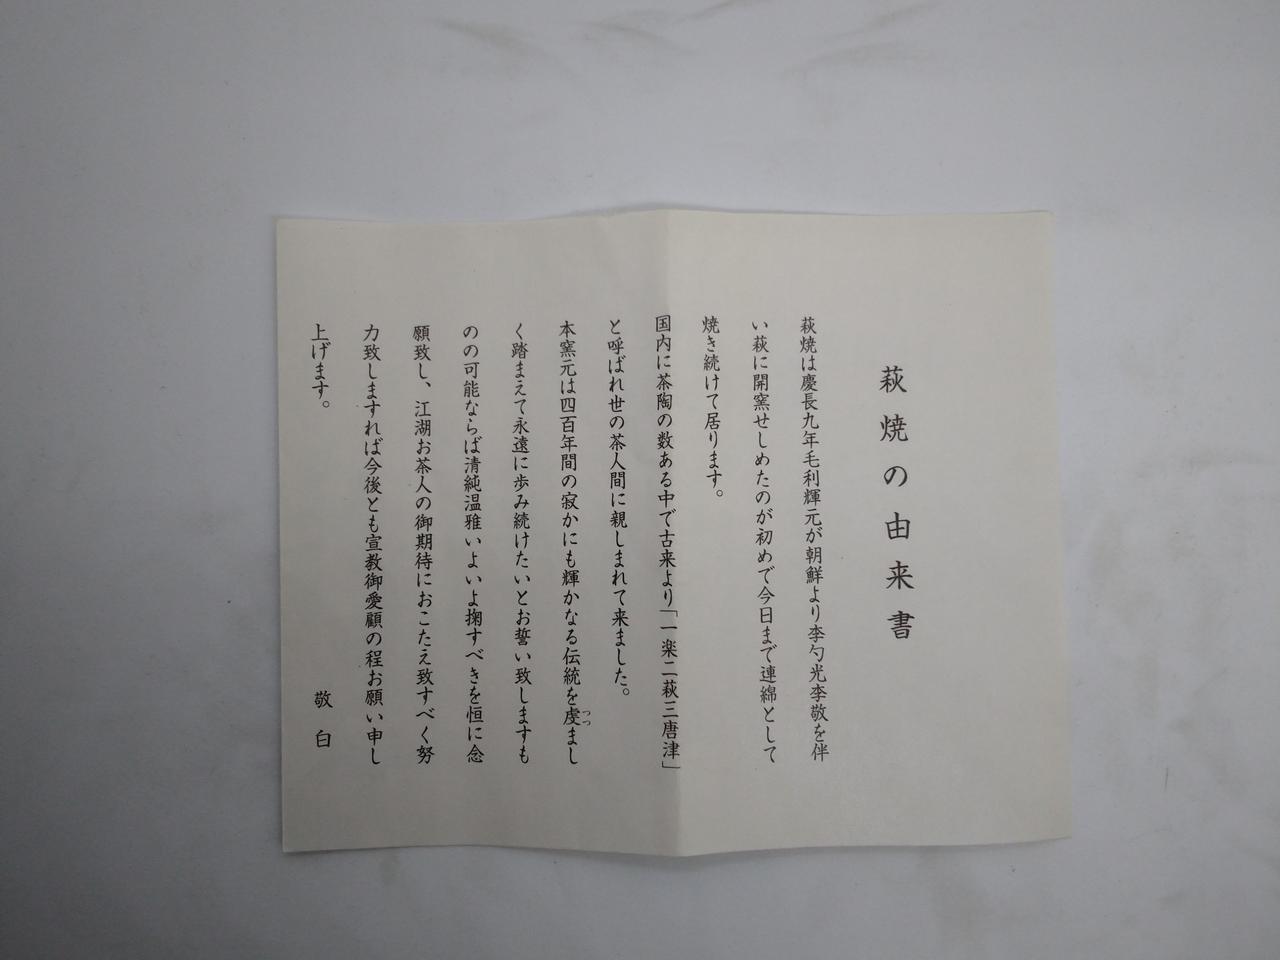 萩焼の由来書
萩焼は慶長九年毛利輝元が朝鮮より李勺光李敬を伴
い萩に開窯せしめたのが初めで今日まで連綿として
焼き続けて居ります。
国内に茶陶の数ある中で古来より「一楽二萩三唐津」
と呼ばれ世の茶人間に親しまれて来ました。
本窯元は四百年間の寂かにも輝かなる伝統を虔まし
つつ
く踏まえて永遠に歩み続けたいとお誓い致しますも
のの可能ならば清純温雅いよいよ掬すべきを恒に念
願致し、江湖お茶人の御期待におこたえ致すべく努
力致しますれば今後とも宣教御愛顧の程お願い申し
上げます。
敬白